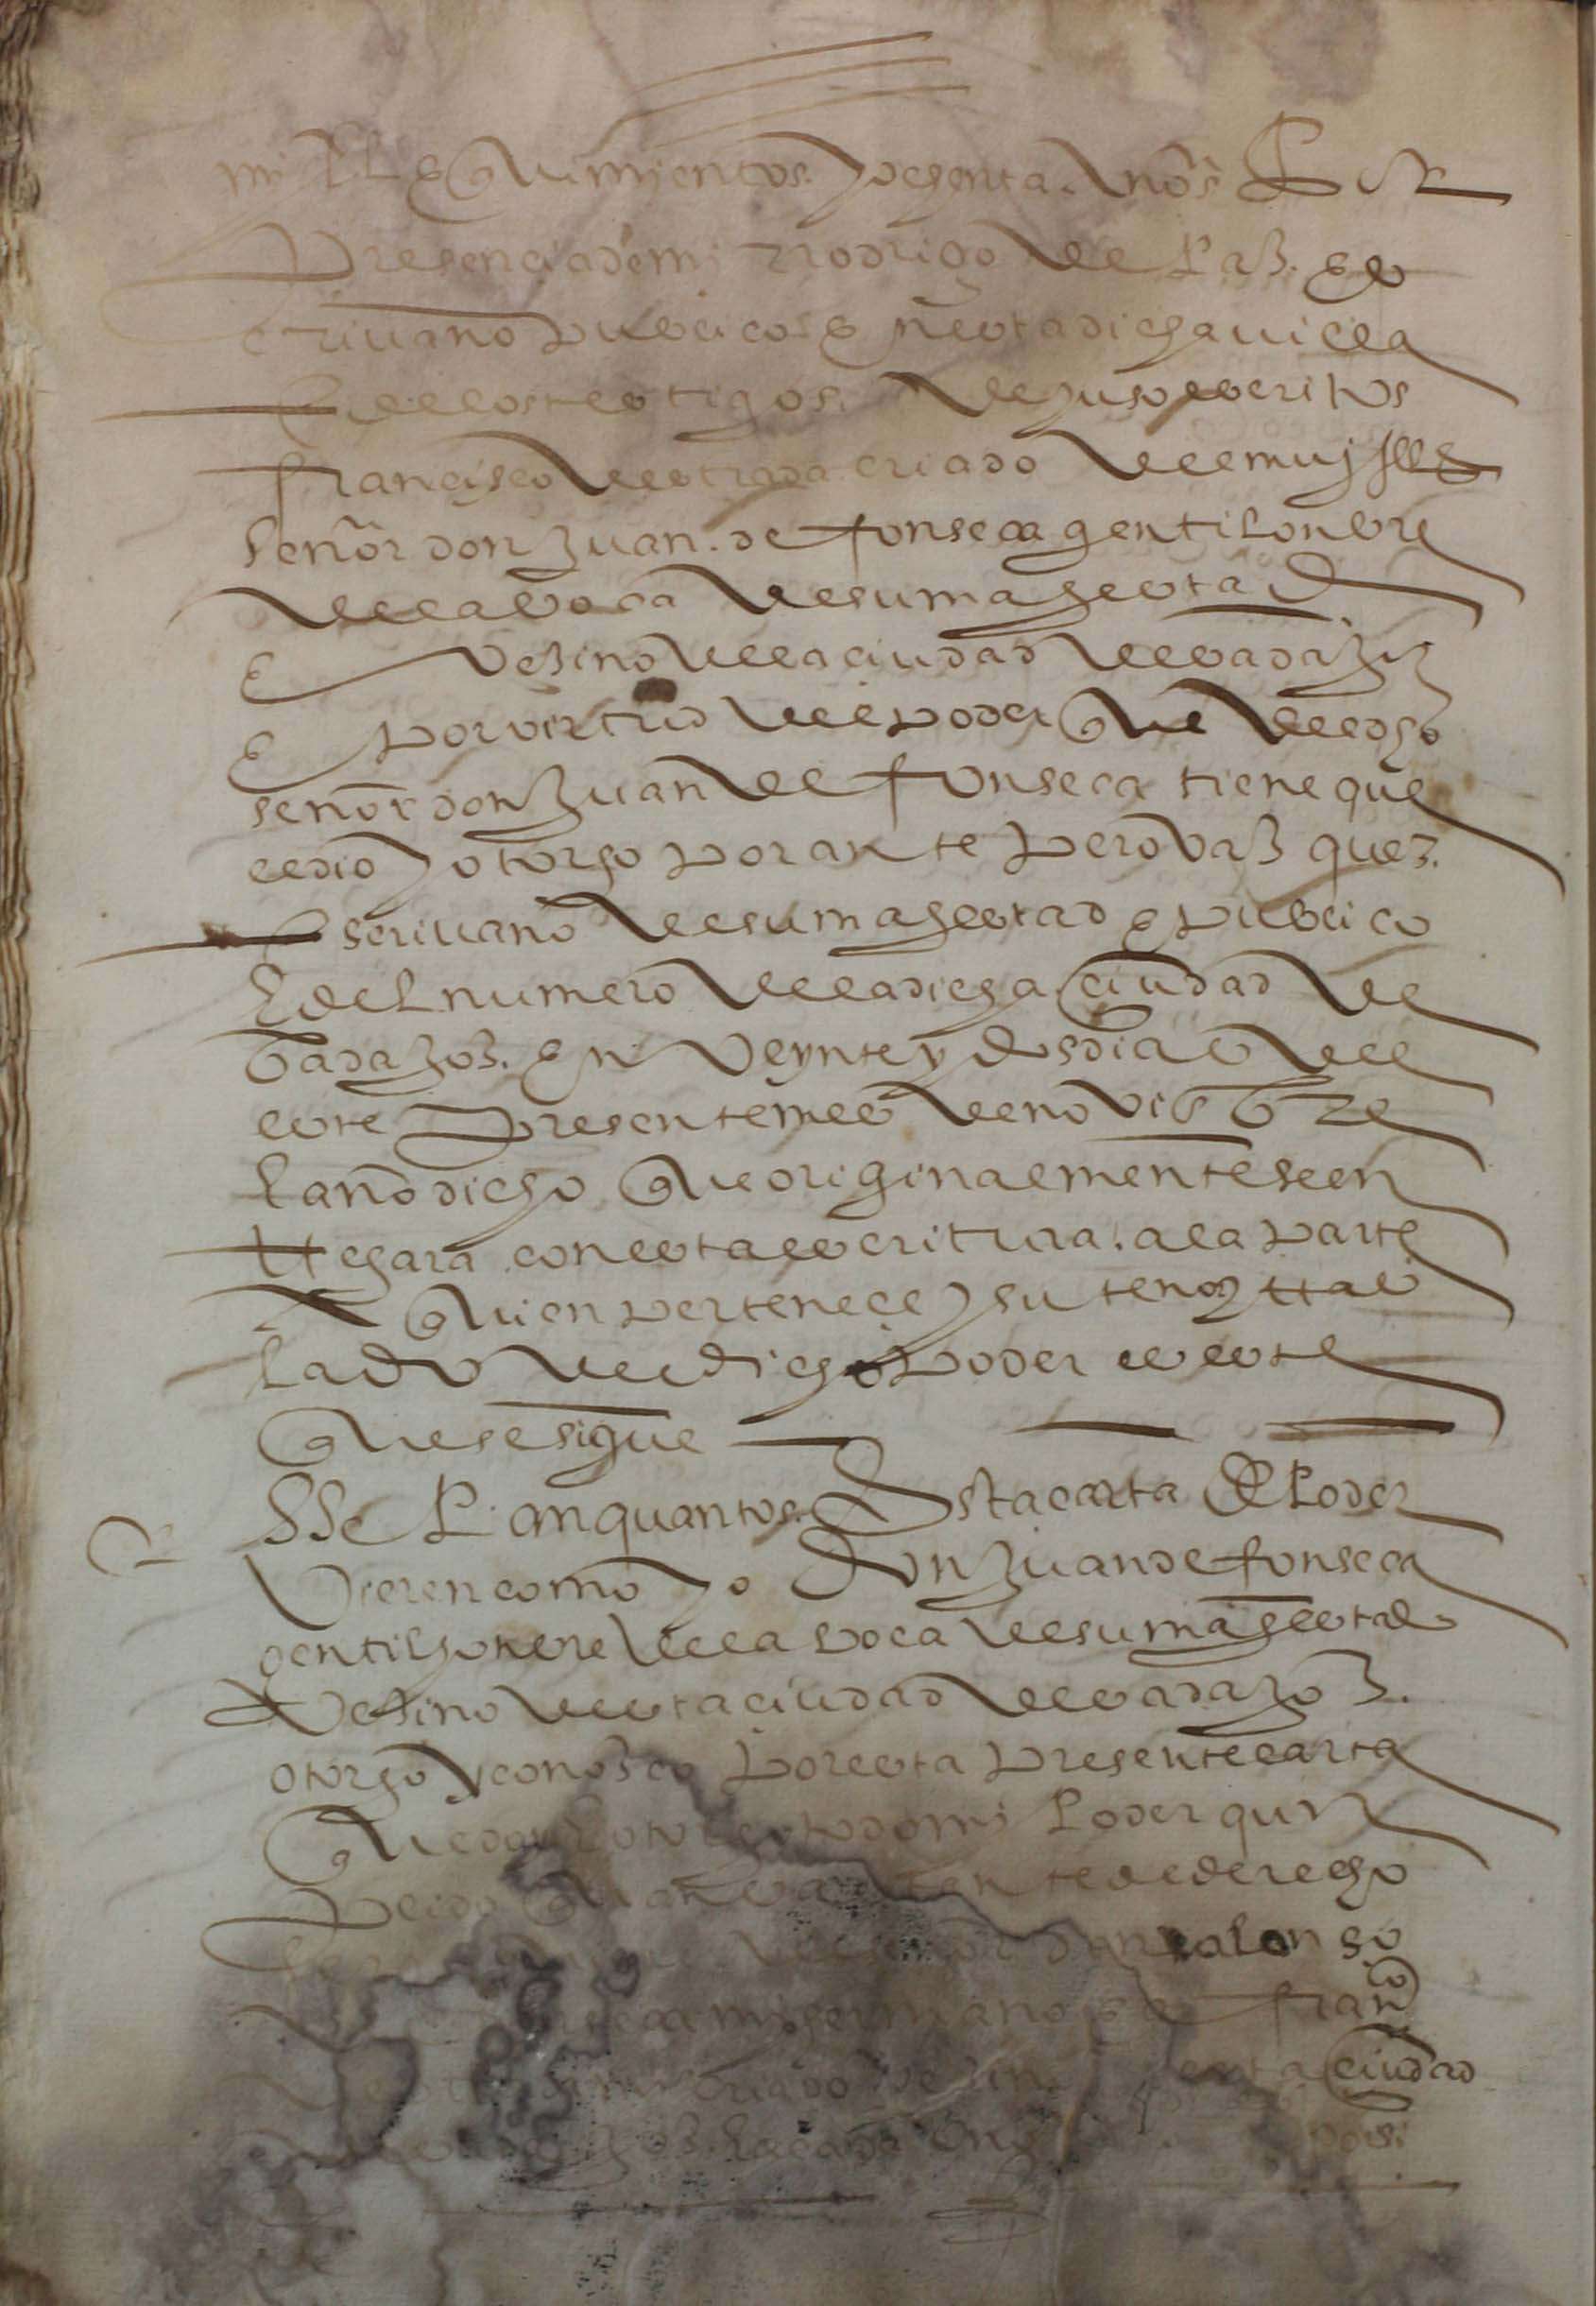 mill e quinientos y ochenta años En
presencia de mi rrodrigo de Paz es
criuano publico en esta dicha uilla
e de los testigos de yuso escritos
francisco destrada criado del muy Illе
señor don Juan de fonseca gentilonbre
de la boca de su magestad
e vezino de la ciudad de badajoz
e por virtud del poder que del dho
señor don Juan de fonseca tiene que
le dio y otorgo por ante pero vazquez
escriuano de su magestad e publico
e del numero de la dicha ciudad de
badajoz en veynte y dos dias del
este presente mes de novienbre
el año dicho que originalmente se en
tregara con esta escritura a la parte
a quien pertenece y su tenor y tras
lado del dicho poder es este
que se sigue
SSepan quantos Esta carta de Poder
vieren como yo Don Juan de fonseca
gentilhonbre de la boca de su magestad
vezino desta ciudad de badajoz
otorgo y conozco por esta presente carta
que doy e otorgo todo mi Poder cun
plido bastante de derecho
señor don alonso
de fonseca mi hermano e a franco
destrada criado desta ciudad
de badajoz a cada uno